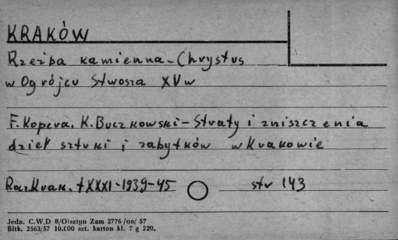 KRAKÓW
Rzeźba kamienna - Chrystus
w Ogrójcu Stwosza XVw
F. Kopera. K. Buczkowski - Straty i zniszczenia
dzieł sztuki i zabytków w Krakowie
Rocz. Krak. t XXXI - 1939-45 str 143
Jedn. C.W.D 8/Olsztyn Zam 2776/on/57
Bltk. 2563/57 10.000 szt. karton kl. ? g 220,